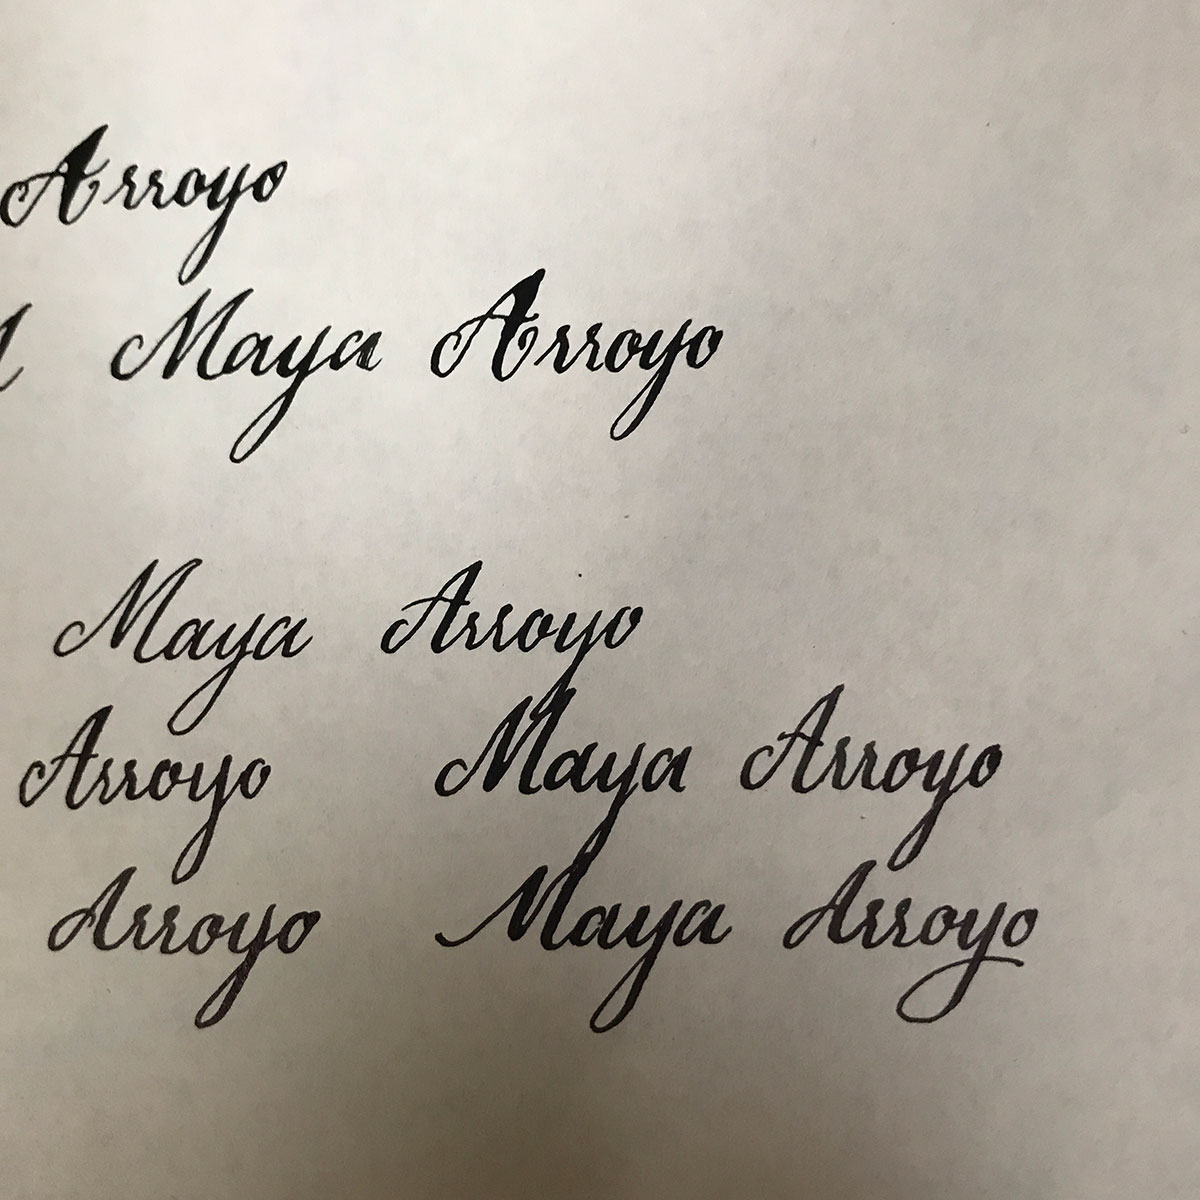 Arroyo
Maya Arroyo
Maya Arroyo
Arroyo Maya Arroyo
Arroyo Maya Arroyo